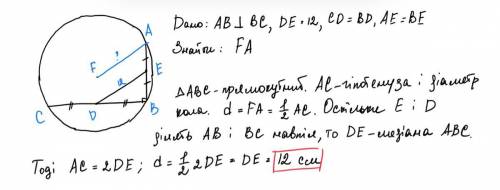 A
?
F
12
E
C
D
B
Дано: AB ⊥ BC, DE = 12, CD = BD, AE = BE
Знайти: FA
△ABC - прямокутний. AC - гіпотенуза і діаметр
кола. d = FA = 1/2 AC. Оскільки E і D
ділять AB і BC навпіл, то DE - медіана ABC.
Тоді AC = 2DE; d = 1/2 2DE = DE = 12 см